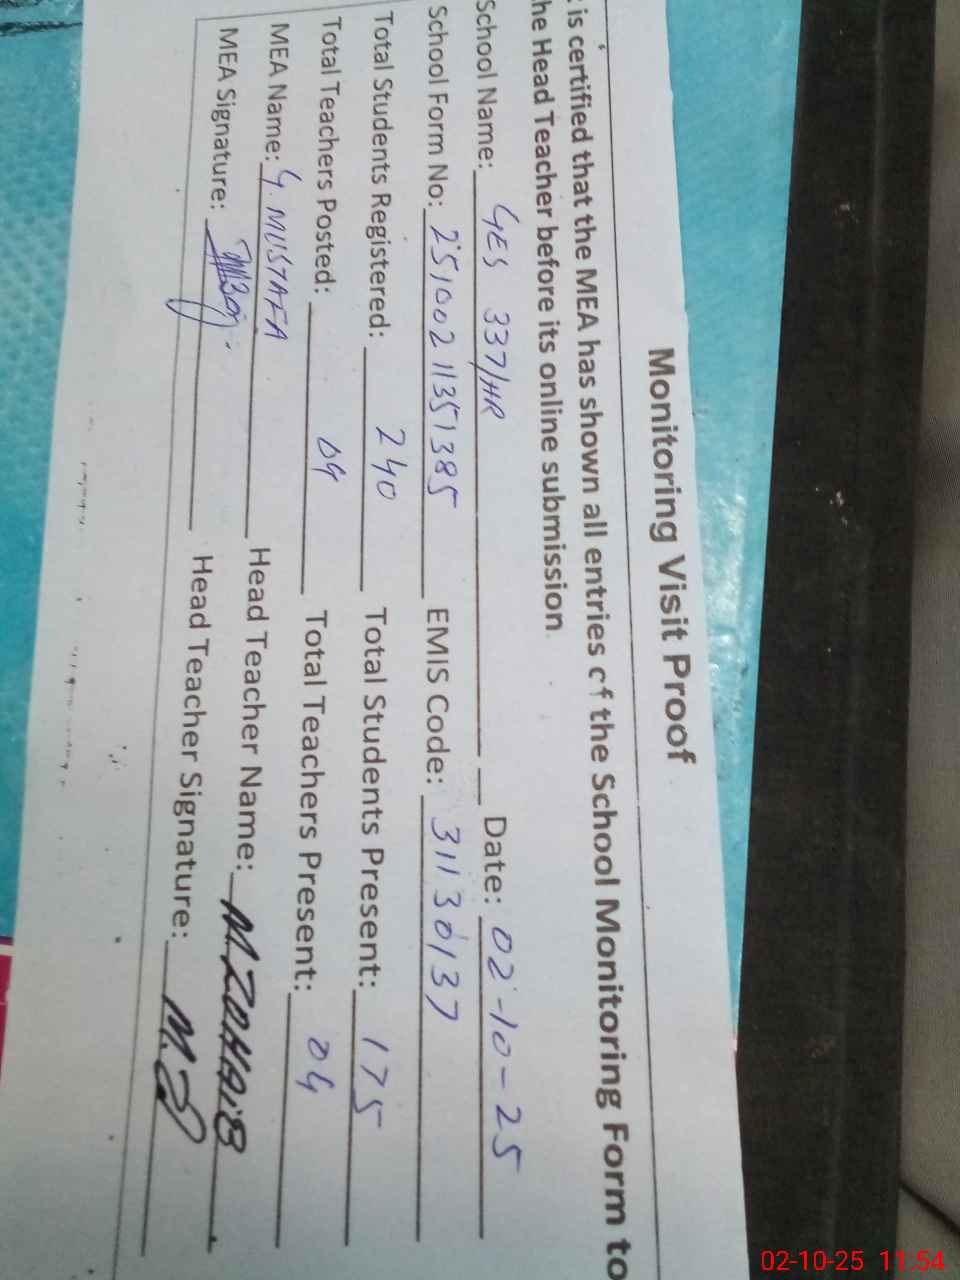 Monitoring Visit Proof
is certified that the MEA has shown all entries of the School Monitoring Form to
he Head Teacher before its online submission.
School Name: GES 337/HR Date: 02-10-25
School Form No: 25100211351385 EMIS Code: 31130137
Total Students Registered: 240 Total Students Present: 175
Total Teachers Posted: 04 Total Teachers Present: 04
MEA Name: G. MUSTAFA Head Teacher Name: M. ZOHAIB
MEA Signature: Head Teacher Signature: M.Z
02-10-25 11:54